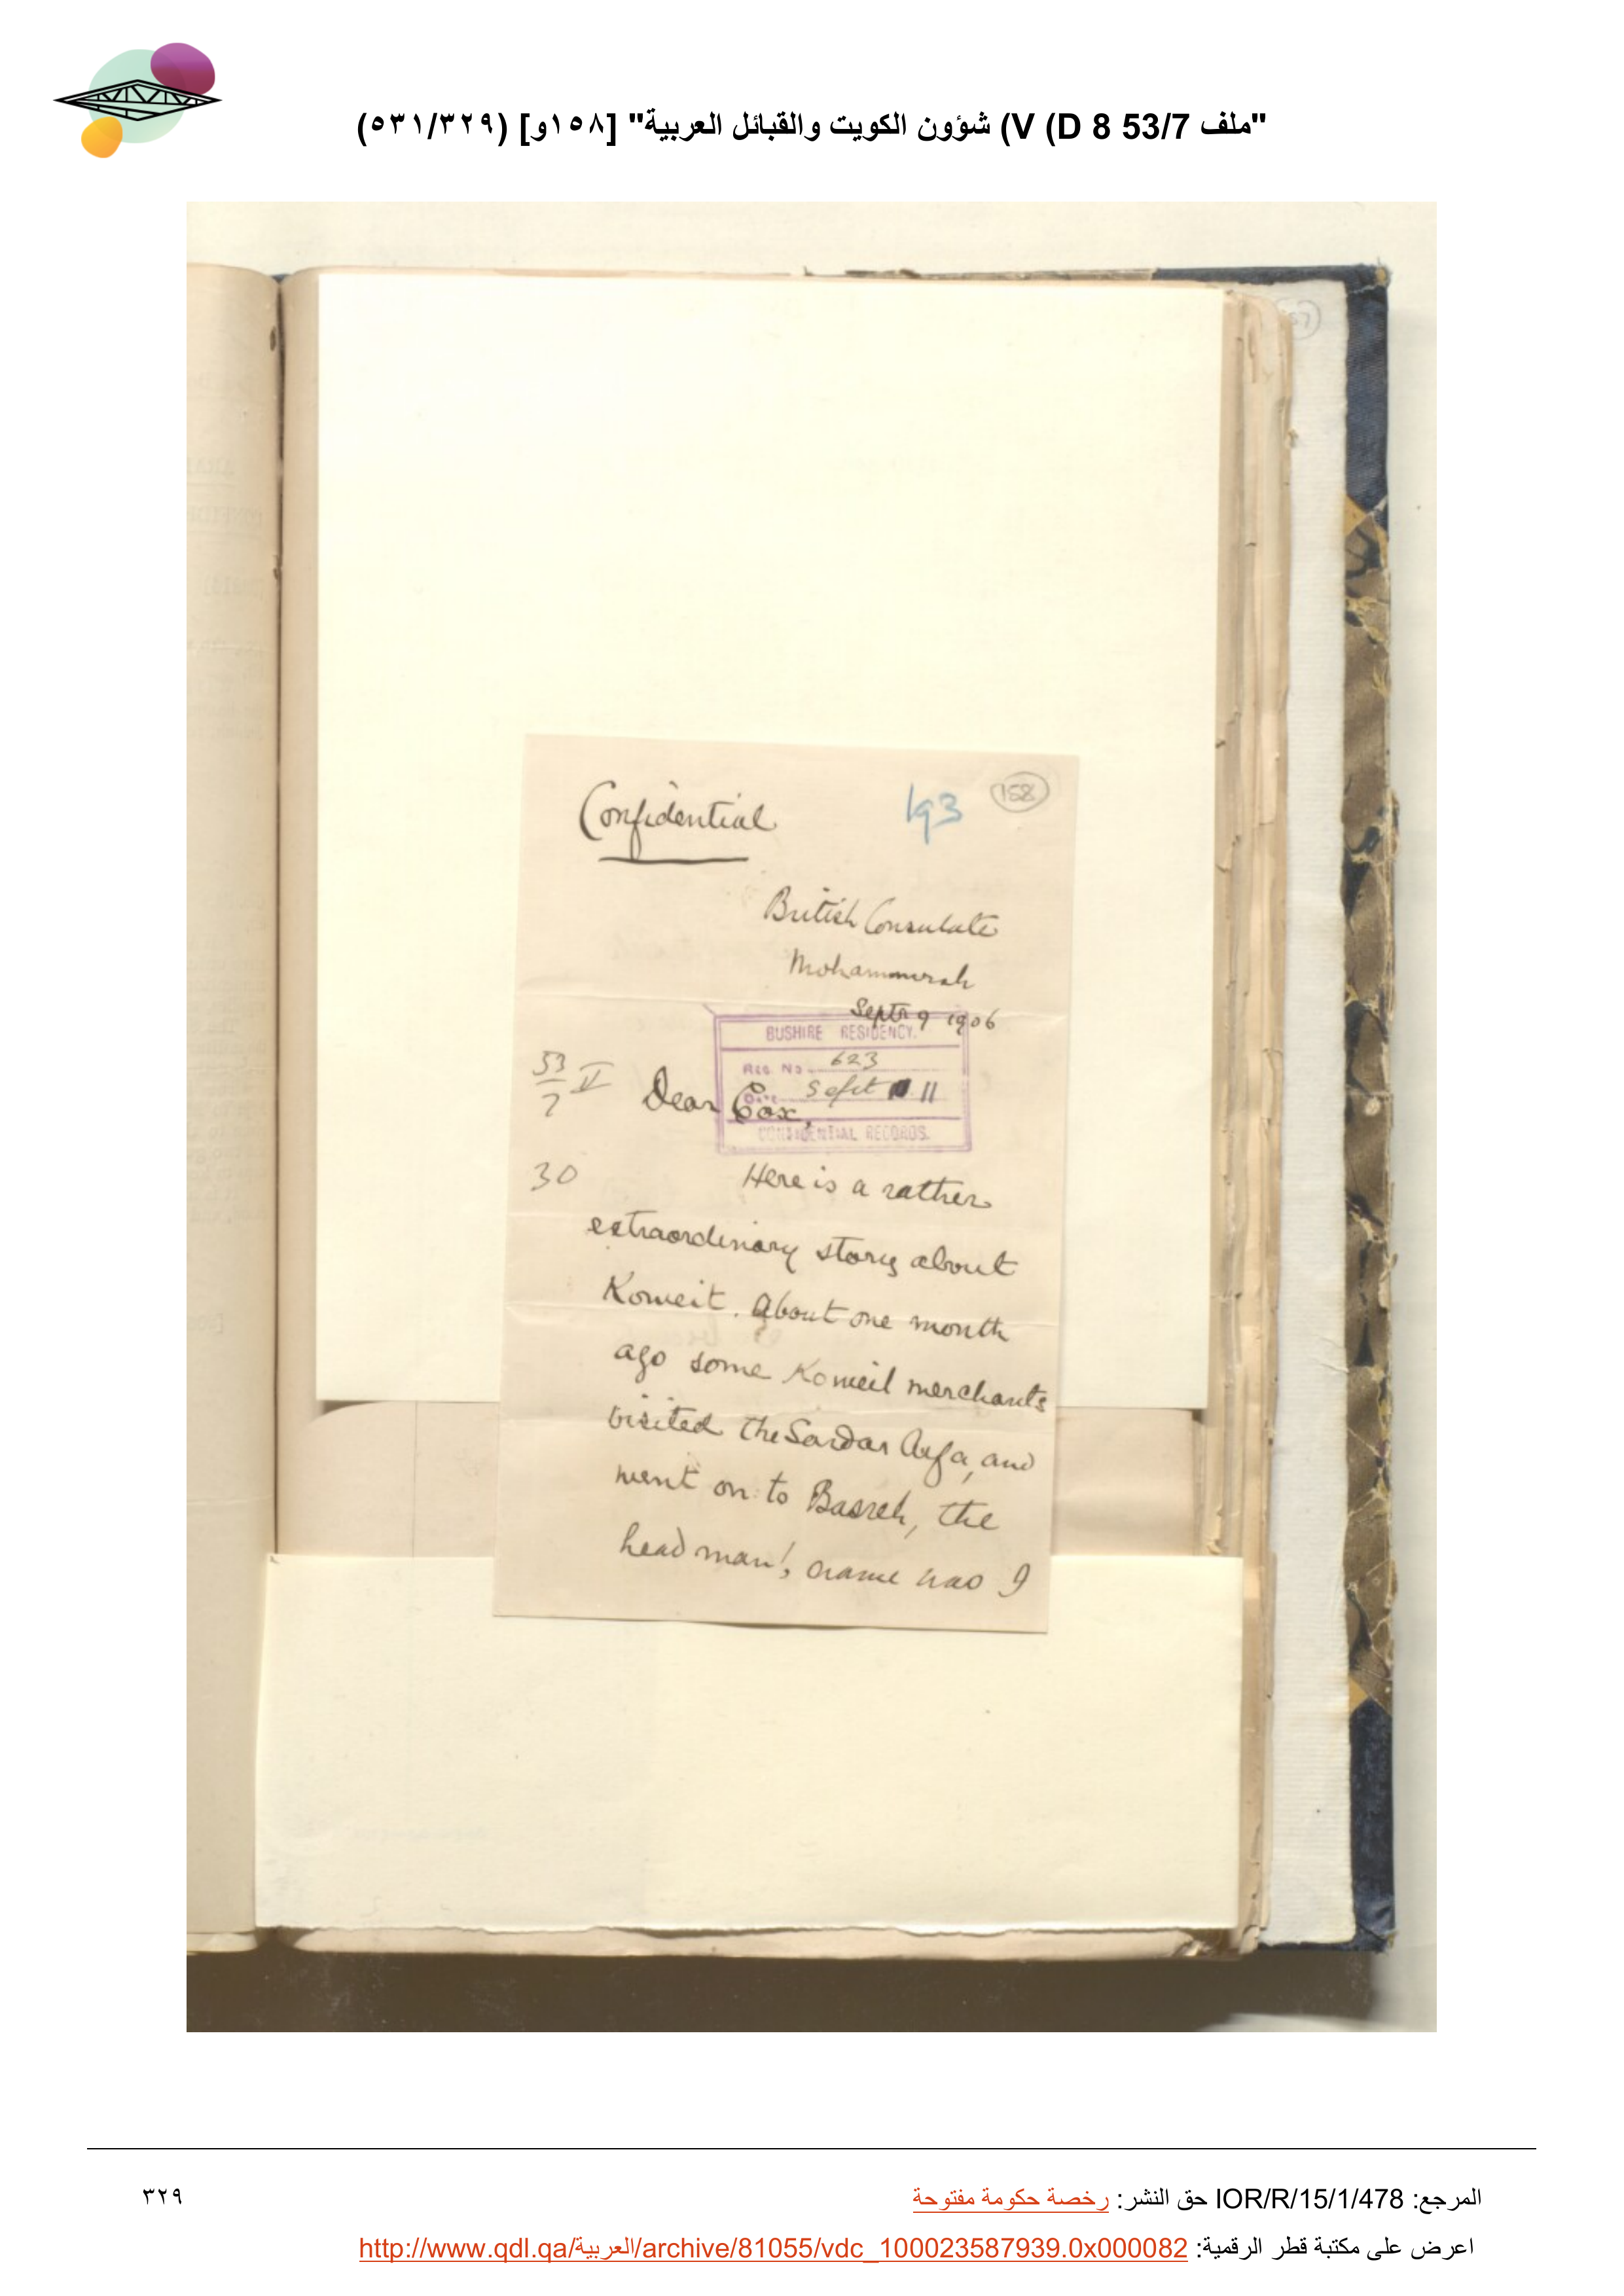 "ملف 53/7 V (D 8) شؤون الكويت والقبائل العربية" [١٥٨و] (٥٣١/٣٢٩)
Confidential
193
158
British Consulate
Mohammerah
Septr 9 1906
BUSHIRE RESIDENCY.
Reg. No 623
Date Sept 11
CONFIDENTIAL RECORDS.
53/7 V
Dear Cox,
30
Here is a rather
extraordinary story about
Koweit. About one month
ago some Koweit merchants
visited the Sardar Arfa, and
went on to Basreh, the
head man's name was I
المرجع: IOR/R/15/1/478 حق النشر: رخصة حكومة مفتوحة
٣٢٩
اعرض على مكتبة قطر الرقمية: http://www.qdl.qa/العربية/archive/81055/vdc_100023587939.0x000082